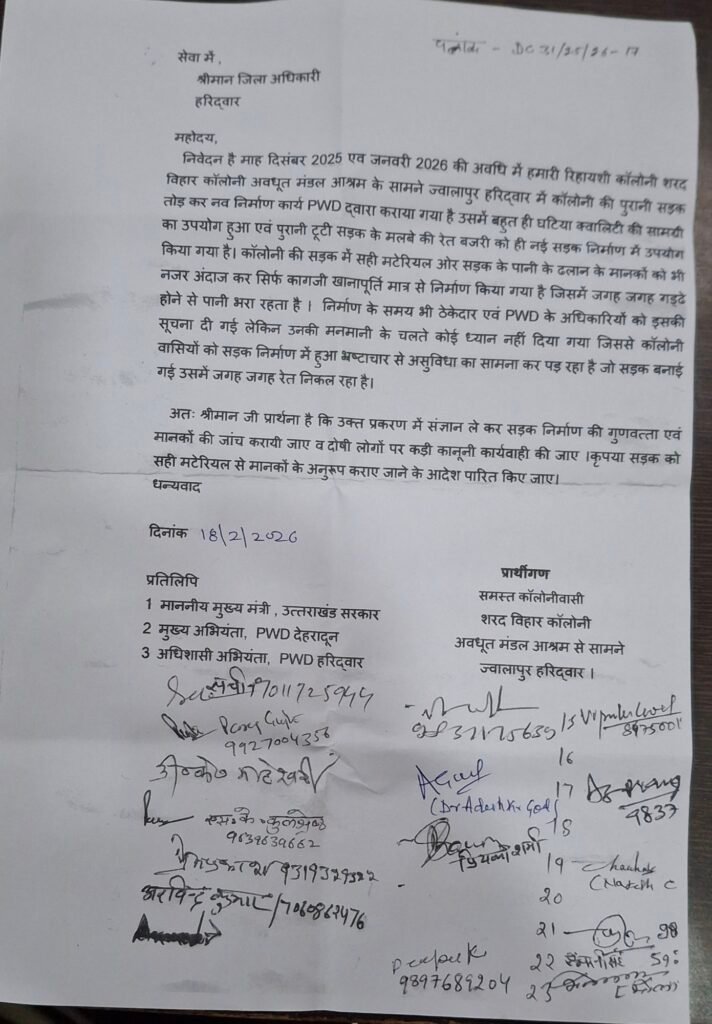 पत्रांक - DC 31/25/26-17
सेवा में ,
श्रीमान जिला अधिकारी
हरिद्वार
महोदय,
निवेदन है माह दिसंबर 2025 एव जनवरी 2026 की अवधि में हमारी रिहायशी कॉलोनी शरद
विहार कॉलोनी अवधूत मंडल आश्रम के सामने ज्वालापुर हरिद्वार में कॉलोनी की पुरानी सड़क
तोड़ कर नव निर्माण कार्य PWD द्वारा कराया गया है उसमें बहुत ही घटिया क्वालिटी की सामग्री
का उपयोग हुआ एवं पुरानी टूटी सड़क के मलबे की रेत बजरी को ही नई सड़क निर्माण में उपयोग
किया गया है। कॉलोनी की सड़क में सही मटेरियल ओर सड़क के पानी के ढलान के मानकों को भी
नजर अंदाज कर सिर्फ कागजी खानापूर्ति मात्र से निर्माण किया गया है जिसमें जगह जगह गड्ढे
होने से पानी भरा रहता है । निर्माण के समय भी ठेकेदार एवं PWD के अधिकारियों को इसकी
सूचना दी गई लेकिन उनकी मनमानी के चलते कोई ध्यान नहीं दिया गया जिससे कॉलोनी
वासियों को सड़क निर्माण में हुआ भ्रष्टाचार से असुविधा का सामना कर पड़ रहा है जो सड़क बनाई
गई उसमें जगह जगह रेत निकल रहा है।
अतः श्रीमान जी प्रार्थना है कि उक्त प्रकरण में संज्ञान ले कर सड़क निर्माण की गुणवत्ता एवं
मानकों की जांच करायी जाए व दोषी लोगों पर कड़ी कानूनी कार्यवाही की जाए ।कृपया सड़क को
सही मटेरियल से मानकों के अनुरूप कराए जाने के आदेश पारित किए जाए।
धन्यवाद
दिनांक 18/2/2026
प्रतिलिपि
1 माननीय मुख्य मंत्री , उत्तराखंड सरकार
2 मुख्य अभियंता, PWD देहरादून
3 अधिशासी अभियंता, PWD हरिद्वार
प्रार्थीगण
समस्त कॉलोनीवासी
शरद विहार कॉलोनी
अवधूत मंडल आश्रम से सामने
ज्वालापुर हरिद्वार ।
7011725944
9927004356
एस.के. कुलश्रेष्ठ
9639639662
9319329322
अरविन्द कुमार/7060862476
15
16
17
(Dr Adesh Kr Goel)
9837
18
प्रियंका शर्मा
19
20
21
22
23
Deepak
9897689204